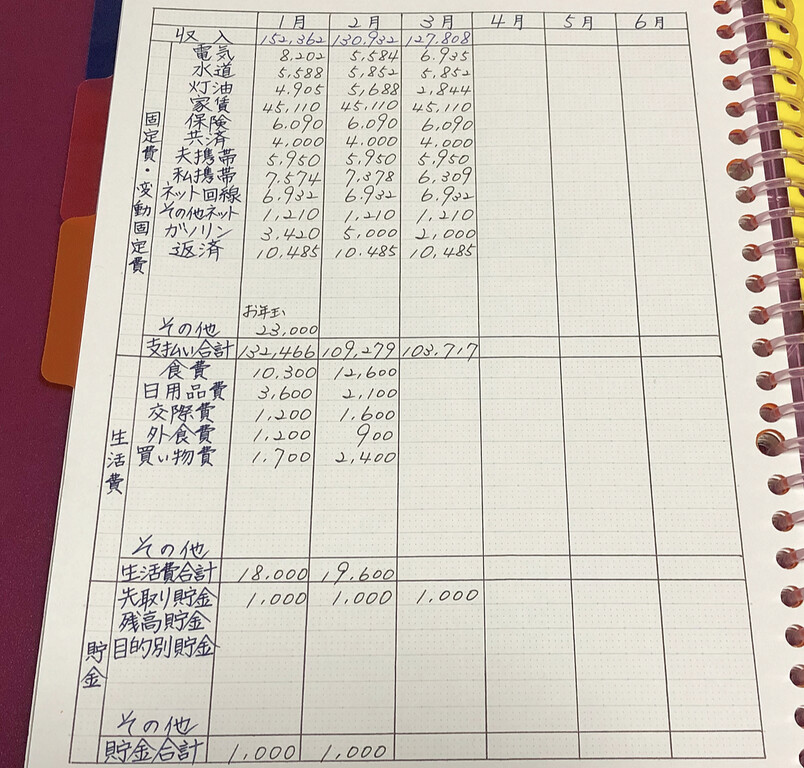 1月 2月 3月 4月 5月 6月
収入 152,362 130,932 127,808
固定費・変動固定費
電気 8,202 5,584 6,935
水道 5,588 5,852 5,852
灯油 4,905 5,688 2,844
家賃 45,110 45,110 45,110
保険 6,090 6,090 6,090
共済 4,000 4,000 4,000
夫携帯 5,950 5,950 5,950
私携帯 7,574 7,378 6,309
ネット回線 6,932 6,932 6,932
その他ネット 1,210 1,210 1,210
ガソリン 3,420 5,000 2,000
返済 10,485 10,485 10,485
お年玉
その他 23,000
支払い合計 132,466 109,279 103,717
生活費
食費 10,300 12,600
日用品費 3,600 2,100
交際費 1,200 1,600
外食費 1,200 900
買い物費 1,700 2,400
その他
生活費合計 18,000 19,600
貯金
先取り貯金 1,000 1,000 1,000
残高貯金
目的別貯金
その他
貯金合計 1,000 1,000